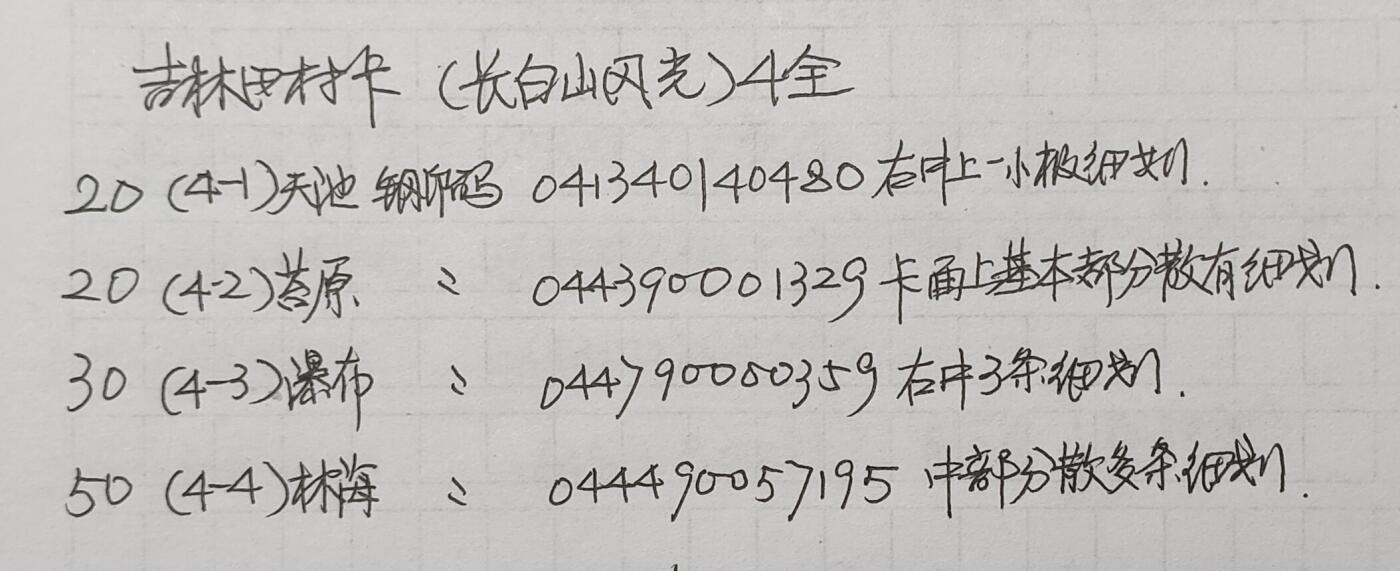 吉林田村卡（长白山风光）4全
20 (4-1)天池 钢印码 041340140480 右中上一小极细划.
20 (4-2)苔原 〃 044390001329 卡面上基本都分散有细划.
30 (4-3)瀑布 〃 044790050359 右中3条细划.
50 (4-4)林海 〃 044490057195 中部分散多条细划.